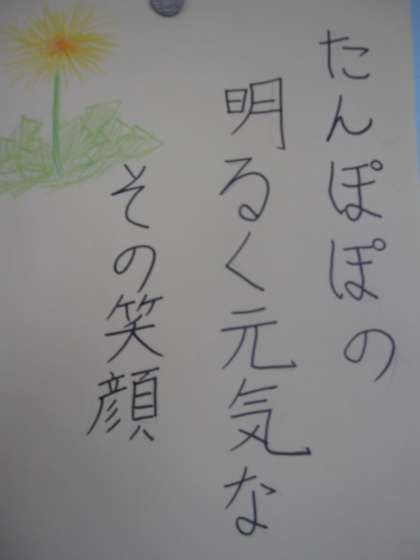 たんぽぽの
明るく元気な
その笑顔